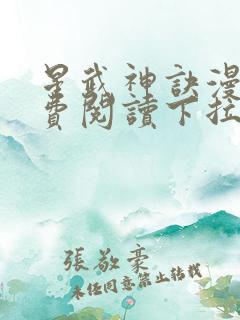 星武神訣漫
費閱讀下拉
張敬豪
未經同意禁止轉載